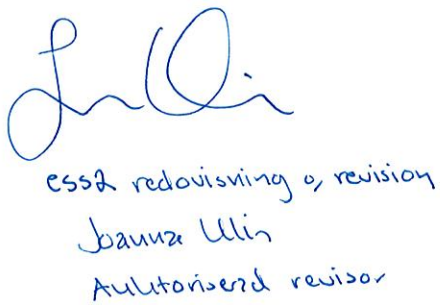 ess2 redovisning o, revision
Joanna Ulin
Auktoriserad revisor